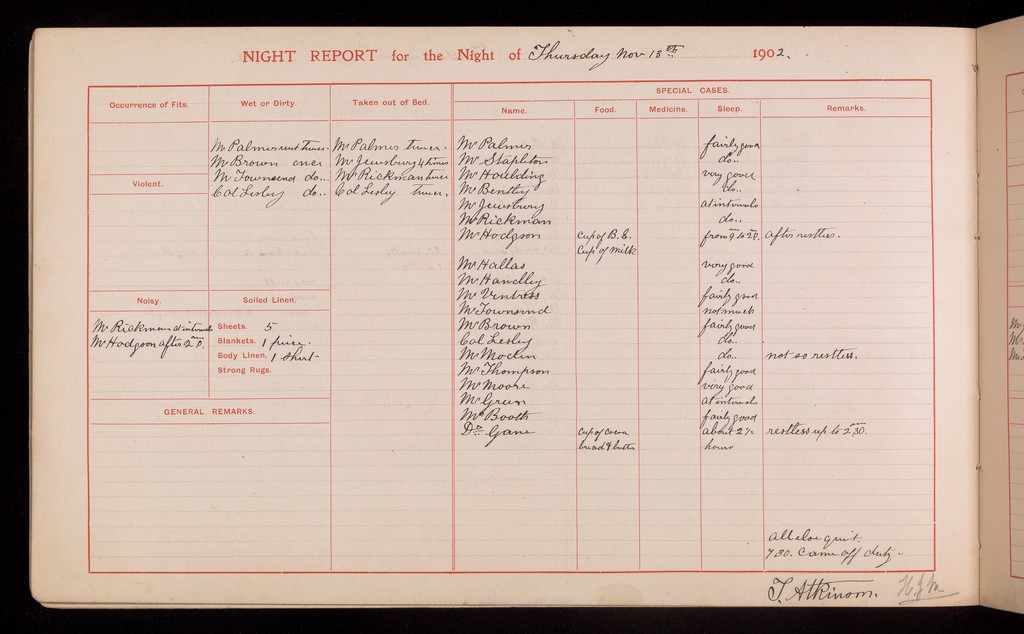 NIGHT REPORT for the Night of Thursday Nov 13th 1902.
Occurrence of Fits.
Wet or Dirty.
Taken out of Bed.
SPECIAL CASES.
Name.
Food.
Medicine.
Sleep.
Remarks.
Mr Palmer wet twice.
Mr Brown once
Mr Townsend do..
Col Lesley do..
Mr Palmer twice.
Mr Jewsbury 4 times
Mr Rickman twice
Col Lesley twice.
Violent.
Noisy.
Mr Rickman at intervals
Mr Hodgson after 2 0.
Soiled Linen.
Sheets. 5
Blankets. 1 piece.
Body Linen. 1 shirt
Strong Rugs.
GENERAL REMARKS.
Mr Palmer fairly good
Mr Stapleton do..
Mr Houlding very good
Mr Bently do..
Mr Jewsbury at intervals
Mr Rickman do..
Mr Hodgson cup of B.E. from 9 to 2 0. after restless.
Cup of milk
Mr Hallas very good
Mr Handley do..
Mr Ventress fairly good
Mr Townsend not much
Mr Brown fairly good
Col Lesley do..
Mr Moclin do.. not so restless.
Mr Thompson fairly good
Mr Moore very good
Mr Green at intervals
Mr Booth fairly good
Dr Gane cup of cocoa about 2½ restless up to 2 30.
bread & butter hours
all else quiet.
7 30. Came off duty
T. Atkinson.